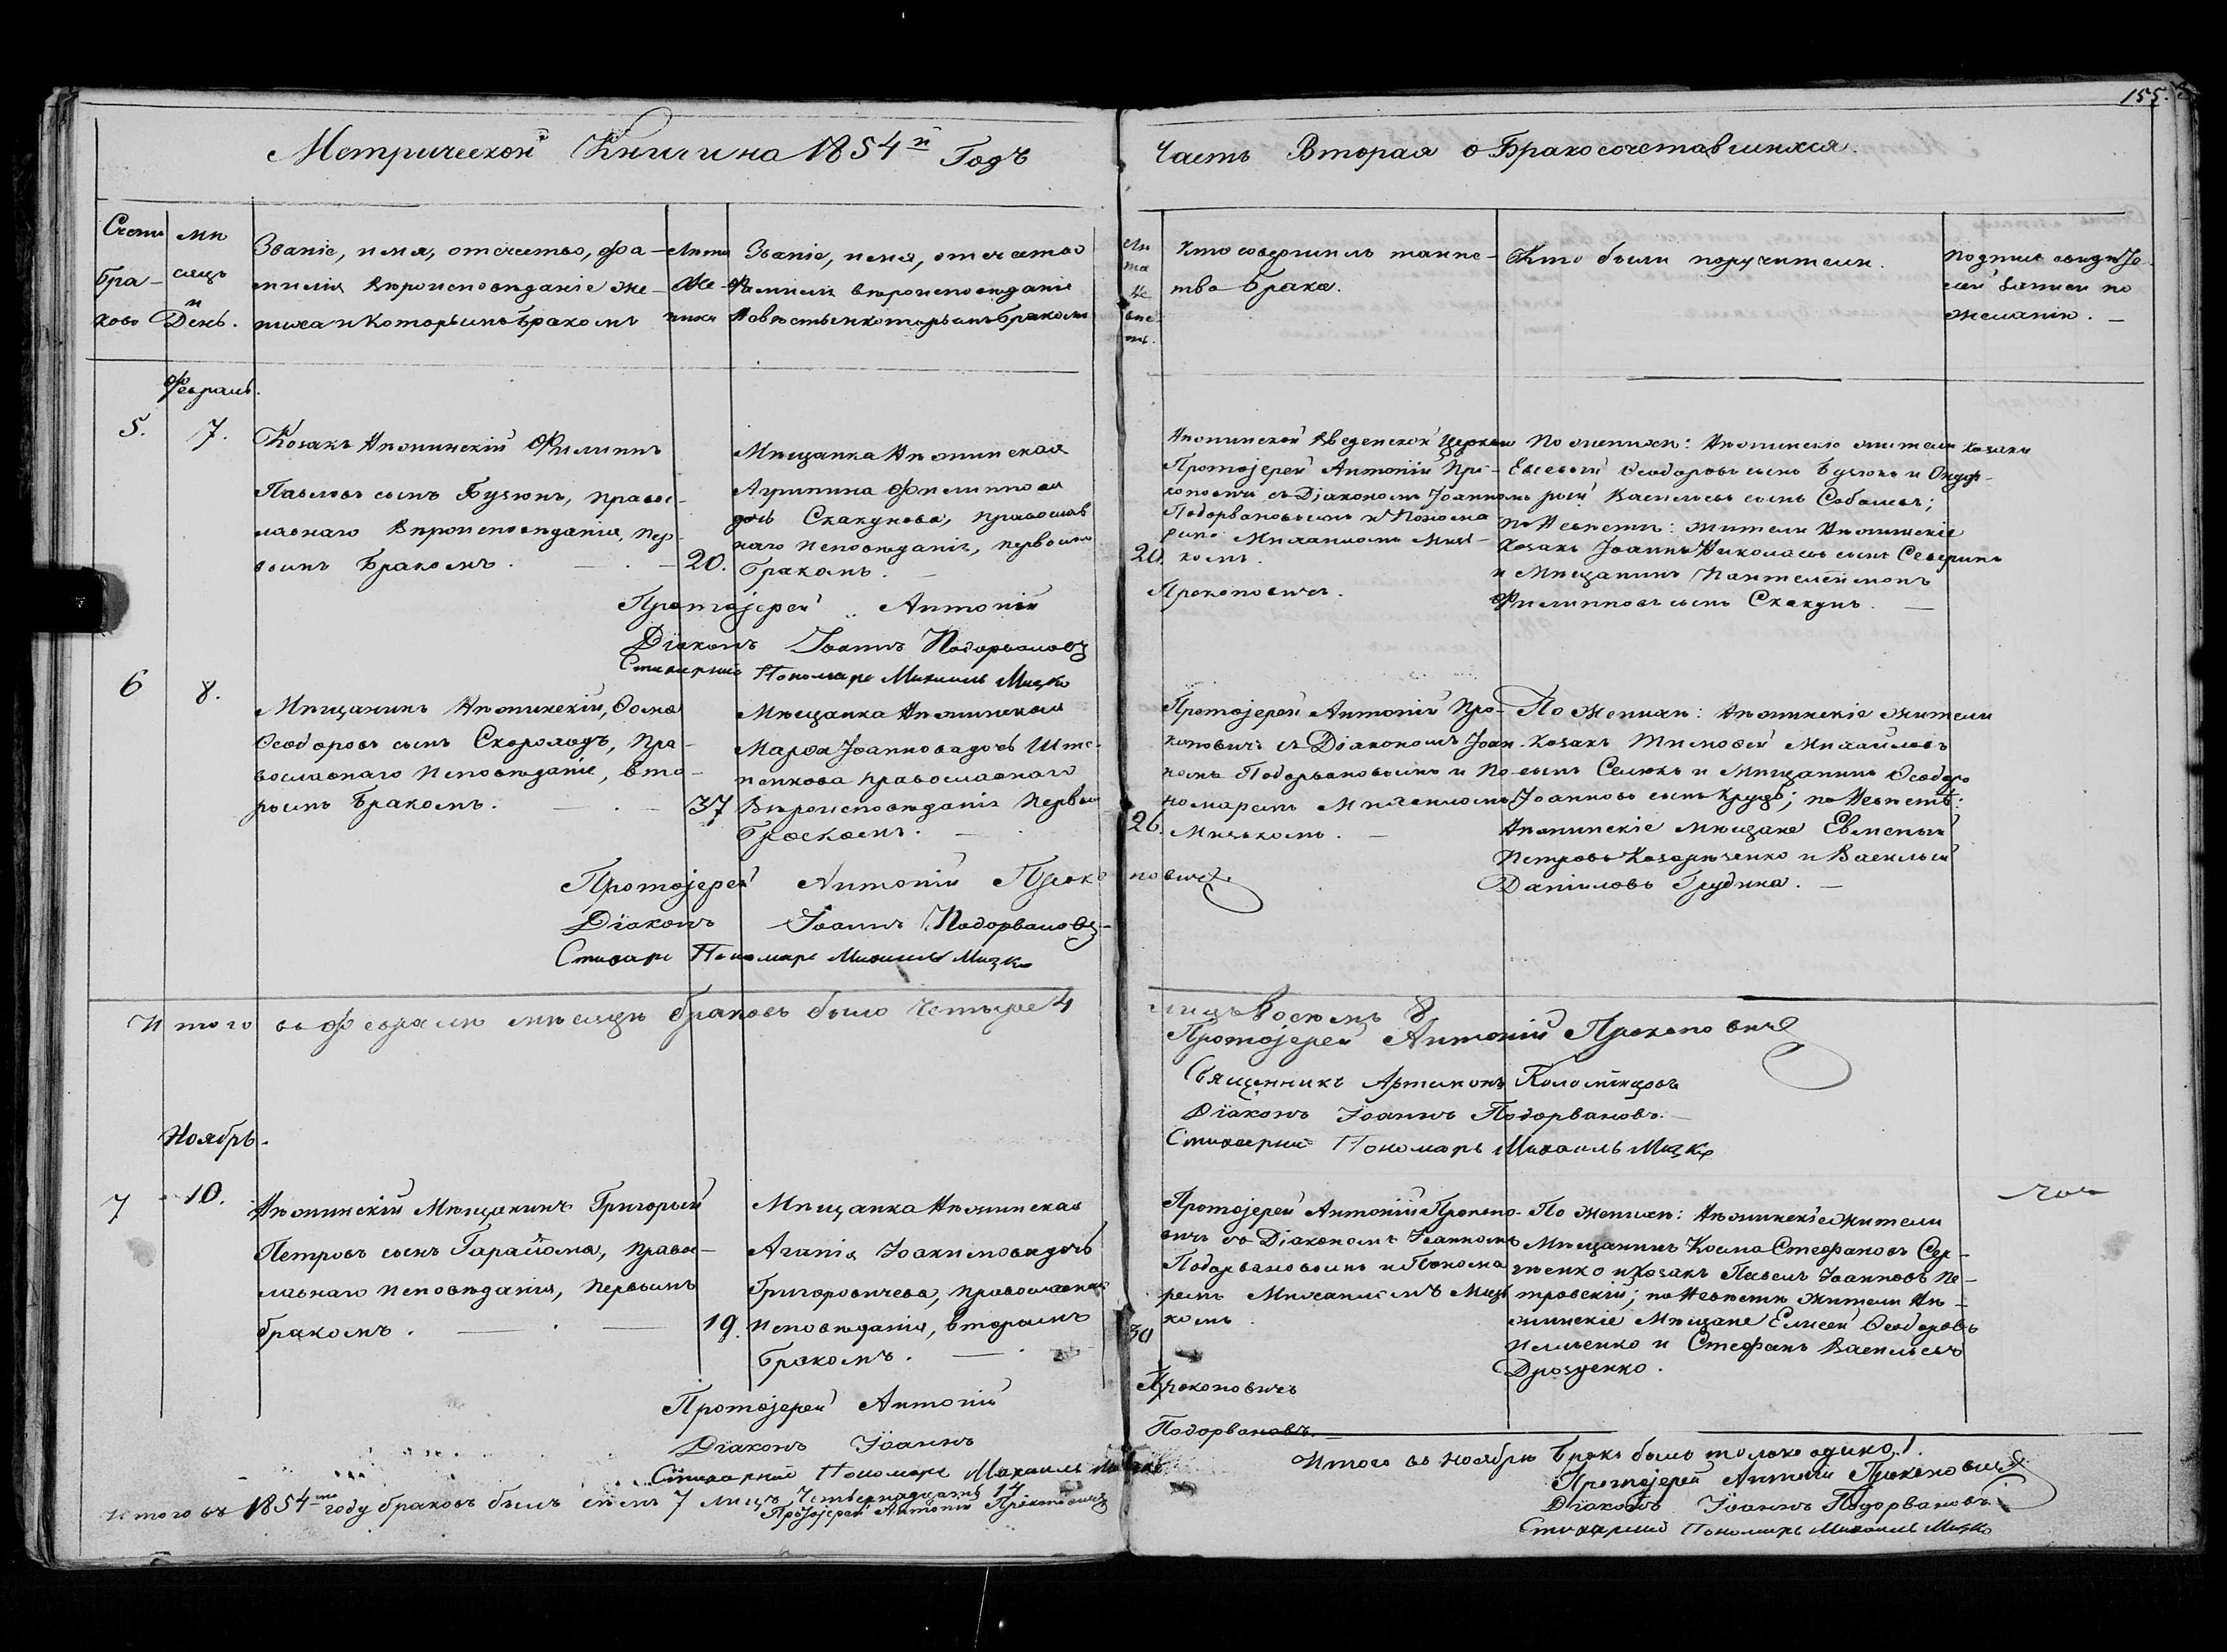 155.
Метрической Книги на 1854й Годъ
Часть Вторая о Бракосочетавшихся.
Счетъ
бра-
ковъ
мѣ
сяцъ
и
День.
Званіе, имя, отечество, фа-
милія вѣроисповѣданіе же-
ниха и которымъ бракомъ
Лѣта
Же-
ниха
Званіе, имя, отечество
Фамилія вѣроисповѣданіе
Невѣсты и которымъ бракомъ
Лѣ
та
Не
вѣс
ты.
Кто совершилъ таинс-
тво брака.
Кто были поручители.
желанію.
Февраль.
5.
7.
Козакъ Нѣжинскій Филиппъ
Павловъ сынъ Бузюнъ, правос-
лавнаго вѣроисповѣданія, пер-
вымъ бракомъ.
20.
Мѣщанка Нѣжинская
Агрипина Филиппова
дочь Скакунова, православ
наго исповѣданія, первымъ
бракомъ.
20.
Нѣжинской Введенской Церкви
Протоіерей Антоній Про-
коповичъ съ Діакономъ Іоанномъ
Подорвановымъ и Понома
ремъ Михаиломъ Миць-
комъ.
По женихѣ: Нѣжинскіе жители козаки
Евсевій Ѳеодоровъ сынъ Бузюнъ и Онуф-
рій Васильевъ сынъ Соболевъ;
по Невѣстѣ: жители Нѣжинскіе
козакъ Іоаннъ Николаевъ сынъ Северинъ
и Мѣщанинъ Пантелеймонъ
Филипповъ сынъ Скакунъ.
Протоіерей Антоній Прокоповичъ.
Діаконъ Іоаннъ Подорвановъ
Стихарный Пономарь Михаилъ Мицко
6
8.
Мѣщанинъ Нѣжинскій, Ѳома
Ѳеодоровъ сынъ Скороходъ, пра-
вославнаго исповѣданія, вто-
рымъ бракомъ.
37
Мѣщанка Нѣжинская
Марѳа Іоаннова дочьШте-
пенкова православнаго
вѣроисповѣданія первымъ
бракомъ.
26.
Протоіерей Антоній Про-
коповичъ съ Діакономъ Іоан-
номъ Подорвановымъ и По-
номаремъ Михаиломъ
Мицькомъ.
По женихѣ: Нѣжинскіе жители
козакъ Тимоѳей Михайловъ
сынъ Селюкъ и Мѣщанинъ Ѳеодоръ
Іоанновъ сынъ Куць; по Невѣстѣ:
Нѣжинскіе мѣщане Евмений
Петровъ Козаченко и Василій
Даніиловъ Грудина.
Протоіерей Антоній Прокоповичъ
Діаконъ Іоаннъ Подорвановъ
Стихарн Пономарь Михаилъ Мицко
Итого въ Февралѣ мѣсяцѣ браковъ было Четыре 4
лицъ Восемь 8
Протоіерей Антоній Прокоповичъ
Священникъ Артемонъ Коломійцовъ
Діаконъ Іоаннъ Подорвановъ.
Стихарный Пономарь Михаилъ Мицко
Ноябрь.
7
10.
Нѣжинскій Мѣщанинъ Григорий
Петровъ сынъ Гарайома, право-
лавнаго исповѣданія, первымъ
бракомъ.
19.
Мѣщанка Нѣжинская
Агапія Іоакимова дочь
Григоровичева, православнаго
исповѣданія, вторымъ
бракомъ.
30
Протоіерей Антоній Прокопо-
вичъ съ Діакономъ Іоанномъ
Подорвановымъ и Понома
ремъ Михаиломъ Миць
комъ.
По женихѣ: Нѣжинскіе жители
Мѣщанинъ Косма Стефановъ Сер-
гѣенко и Козакъ Павелъ Іоанновъ Пе-
тровскій; по Невѣстѣ жители Нѣ-
жинскіе Мѣщане Елисей Ѳеодоровъ
Ильченко и Стефанъ Васильевъ
Дрозденко.
Протоіерей Антоній Прокоповичъ
Діаконъ Іоаннъ Подорвановъ.
Стихарный Пономарь Михаилъ Мицко
Итого въ Ноябрѣ бракъ былъ только одинъ 1.
Протоіерей Антоній Прокоповичъ
Діаконъ Іоаннъ Подорвановъ
Стихарный Пономарь Михаилъ Мицко
Итого въ 1854мъ году браковъ было семь 7 лицъ Четырнадцать 14
Протоіерей Антоній Прокоповичъ